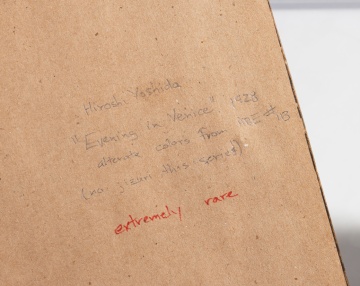 Hiroshi Yoshida
"Evening in Venice" 1928
alternate colors from
(no. this series)
extremely rare